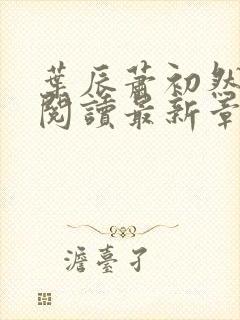 葉辰蕭初然
閱讀最新章
澹臺孑